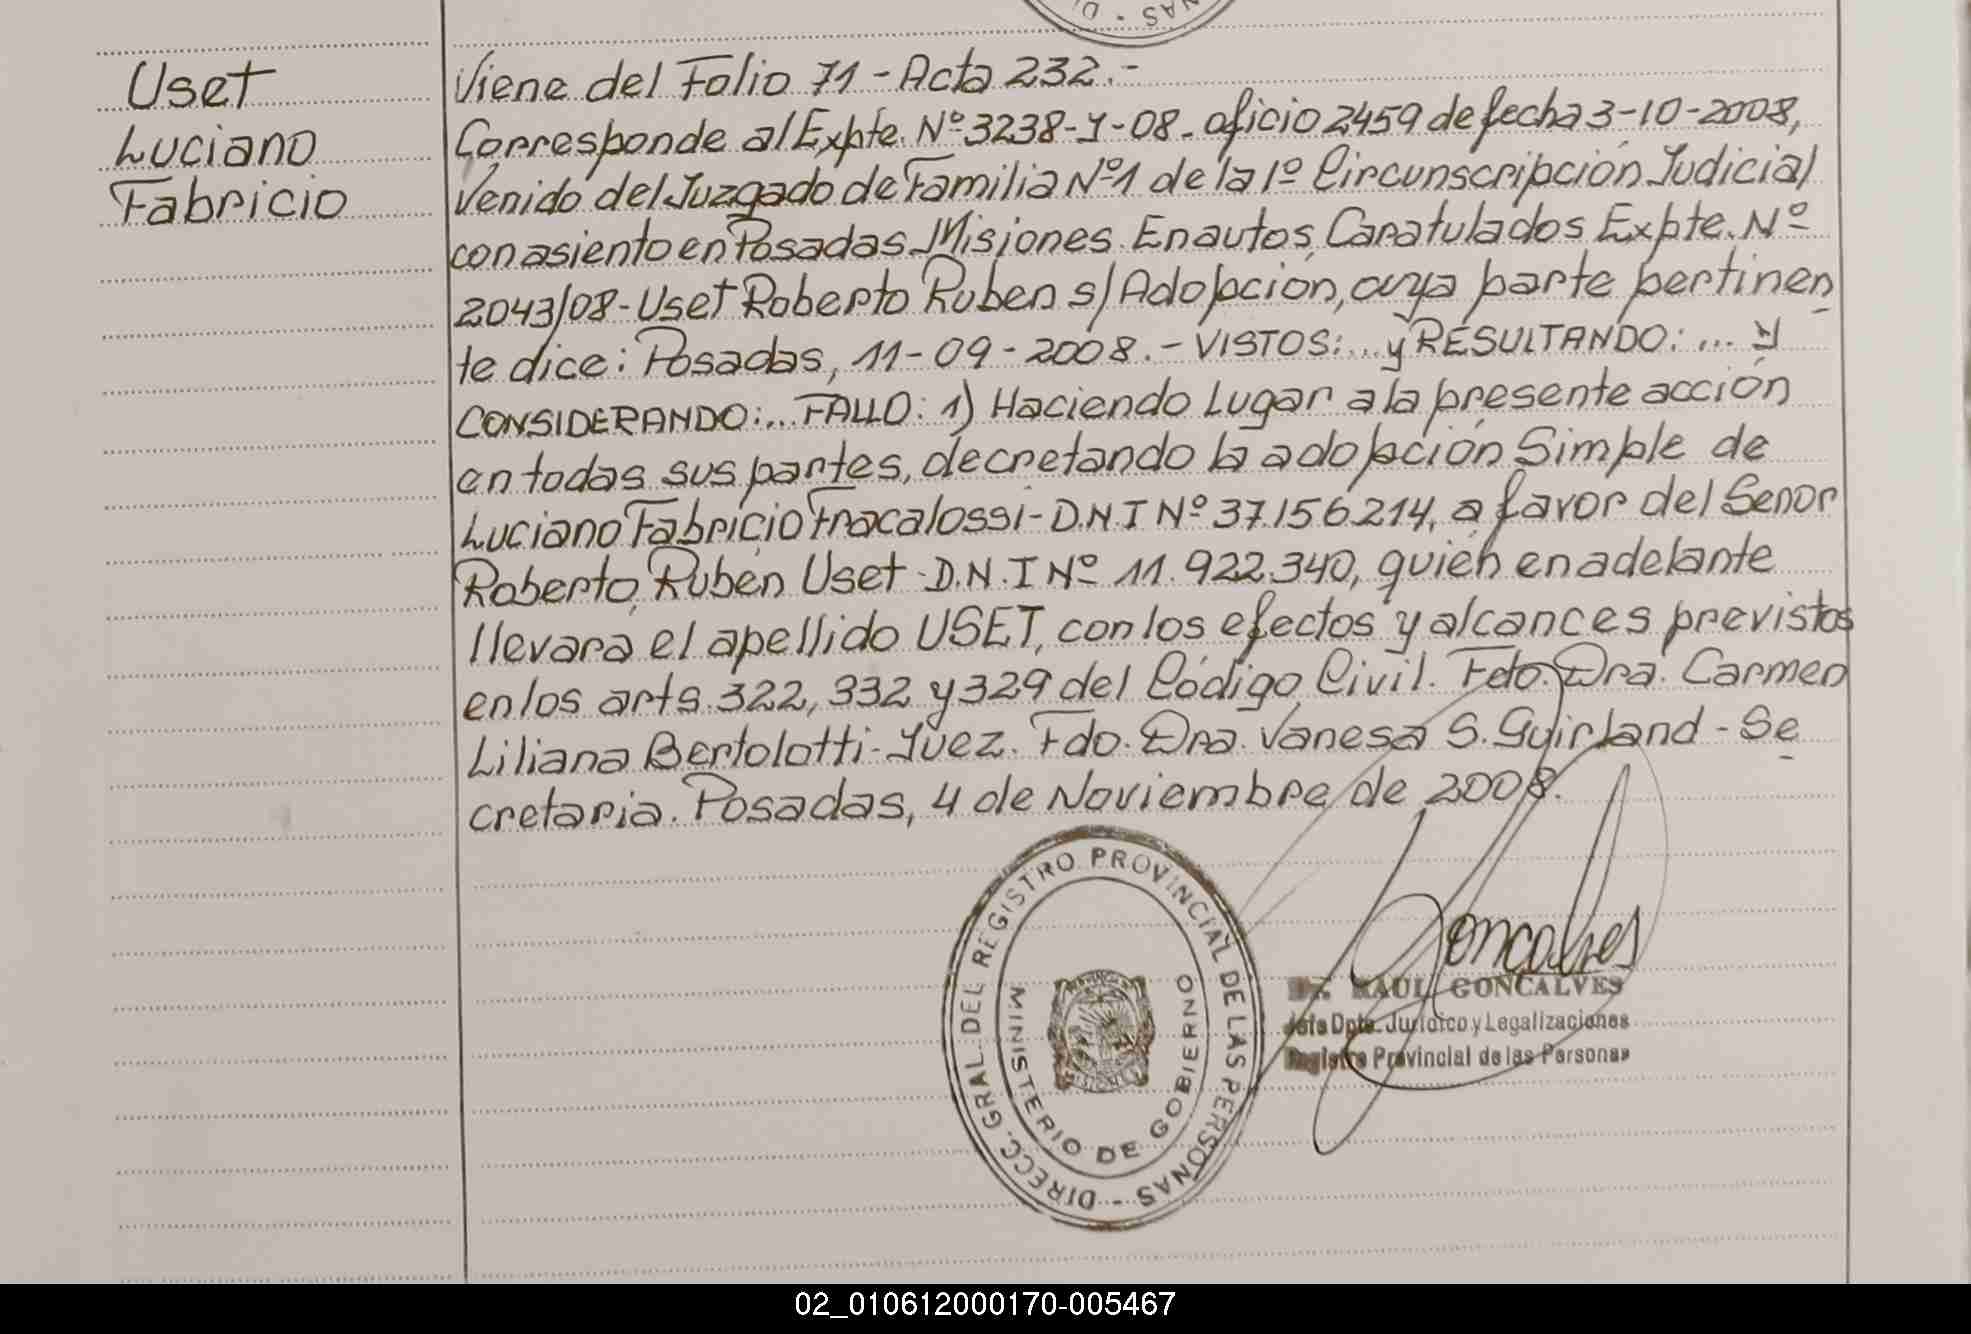 Uset
Luciano
Fabricio
Viene del Folio 71 - Acta 232.-
Corresponde al Expte. Nº 3238-J-08. oficio 2459 de fecha 3-10-2008,
Venido del Juzgado de Familia Nº1 de la 1º Circunscripción Judicial
con asiento en Posadas Misiones. En autos Caratulados Expte. Nº
2043/08- Uset Roberto Ruben s/ Adopción, cuya parte pertinen
te dice: Posadas, 11-09-2008.- VISTOS:... y RESULTANDO: ... y
CONSIDERANDO:... FALLO: 1) Haciendo Lugar a la presente acción
en todas sus partes, decretando la adopción Simple de
Luciano Fabricio Fracalossi- D.N.I Nº 37.156.214, a favor del Senor
Roberto Ruben Uset - D.N.I Nº 11.922.340, quien en adelante
llevara el apellido USET, con los efectos y alcances previstos
en los arts. 322, 332 y 329 del Código Civil. Fdo. Dra. Carmen
Liliana Bertolotti- Juez. Fdo. Dra. Vanesa S. Guirland - Se
cretaria. Posadas, 4 de Noviembre de 2008.
DIRECC. GRAL. DEL REGISTRO PROVINCIAL DE LAS PERSONAS -
MINISTERIO DE GOBIERNO
Goncalves
Dr. RAUL GONCALVES
Jefe Dpto. Jurídico y Legalizaciones
Registro Provincial de las Personas
02_010612000170-005467